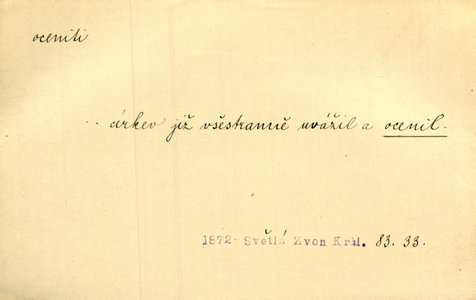 oceniti
.. církev již všestranně uvážil a ocenil.
1872 Světlá Zvon Král. 83. 33.